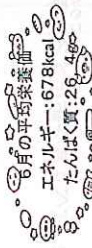 6月の平均栄養価
エネルギー:678kcal
たんぱく質:26.4g